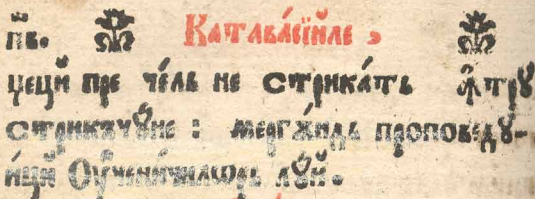 п҃в. Катавасїйле ,
цецй пре че́ль не стрика́ть ꙟтрꙋ
стрикъчꙋ́не : мерга́ндь проповедꙋ-
йцй Оу҆ченичилѡрь лꙋй.